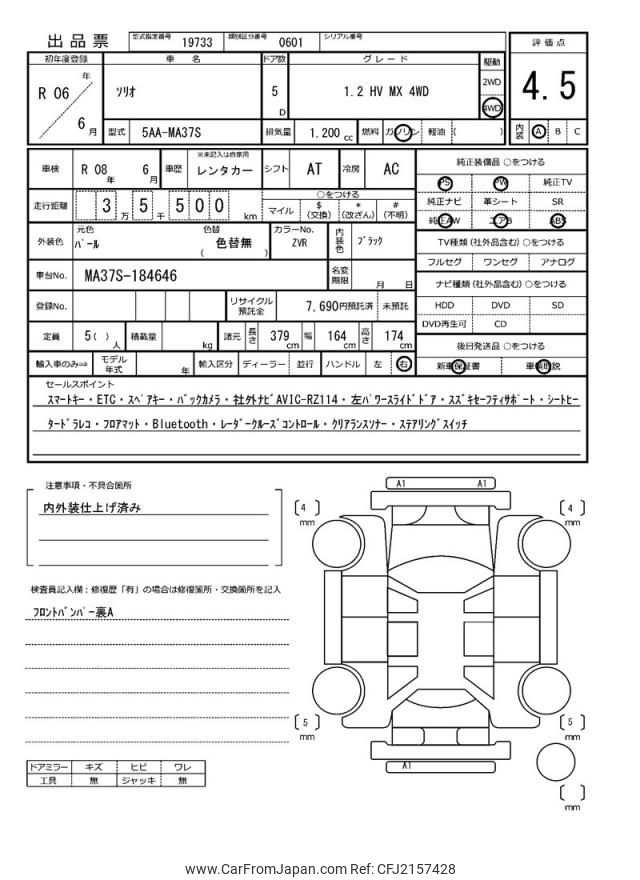 出品票 型式指定番号 19733 類別区分番号 0601 シリアル番号
評価点
4.5
内装 A B C
初年度登録 車名 ドア数 グレード 駆動
R 06 年 6 月 ソリオ 5 D 1.2 HV MX 4WD 2WD 4WD
型式 5AA-MA37S 排気量 1,200 cc 燃料 ガソリン 軽油 ( )
車検 R 08 年 6 月 車歴 ※未記入は自家用 レンタカー シフト AT 冷房 AC
走行距離 3 万 5 千 5 0 0 km ○をつける
マイル $(交換) *(改ざん) #(不明)
外装色 元色 パール 色替 色替無 ( ) カラーNo. ZVR 内装色 ブラック
車台No. MA37S-184646 名変期限 月 日
登録No. リサイクル預託金 7,690円預託済 未預託
定員 5( ) 人 積載量 kg 諸元 長さ 379 cm 幅 164 cm 高さ 174 cm
輸入車のみ⇒ モデル年式 年 輸入区分 ディーラー 並行 ハンドル 左 右
純正装備品 ○をつける
PS PW 純正TV
純正ナビ 革シート SR
純正AW エアB ABS
TV種類 (社外品含む) ○をつける
フルセグ ワンセグ アナログ
ナビ種類 (社外品含む) ○をつける
HDD DVD SD
DVD再生可 CD
後日発送品 ○をつける
新車保証書 車輌取説
セールスポイント
スマートキー・ETC・スペアキー・バックカメラ・社外ナビAVIC-RZ114・左パワースライドドア・スズキセーフティサポート・シートヒー
タードラレコ・フロアマット・Bluetooth・レーダークルーズコントロール・クリアランスソナー・ステアリングスイッチ
注意事項・不具合箇所
内外装仕上げ済み
検査員記入欄：修復歴「有」の場合は修復箇所・交換箇所を記入
フロントバンパー裏A
A1 A1
[ 4 ] mm
[ 4 ] mm
[ 5 ] mm
[ 5 ] mm
A1
[ ] mm
ドアミラー キズ ヒビ ワレ
工具 無 ジャッキ 無
www.CarFromJapan.com Ref: CFJ2157428